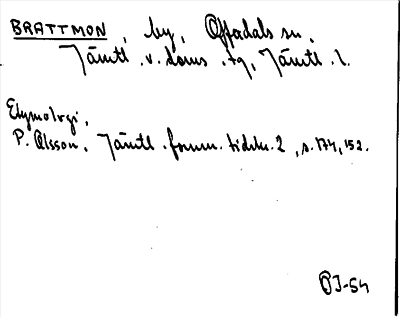 BRATTMON, by, Offerdals sn,
Jämtl. v. doms. tg, Jämtl. l.
Etymologi,
P. Olsson, Jämtl. fornm. tidskr. 2, s. 174, 152.
PJ-54